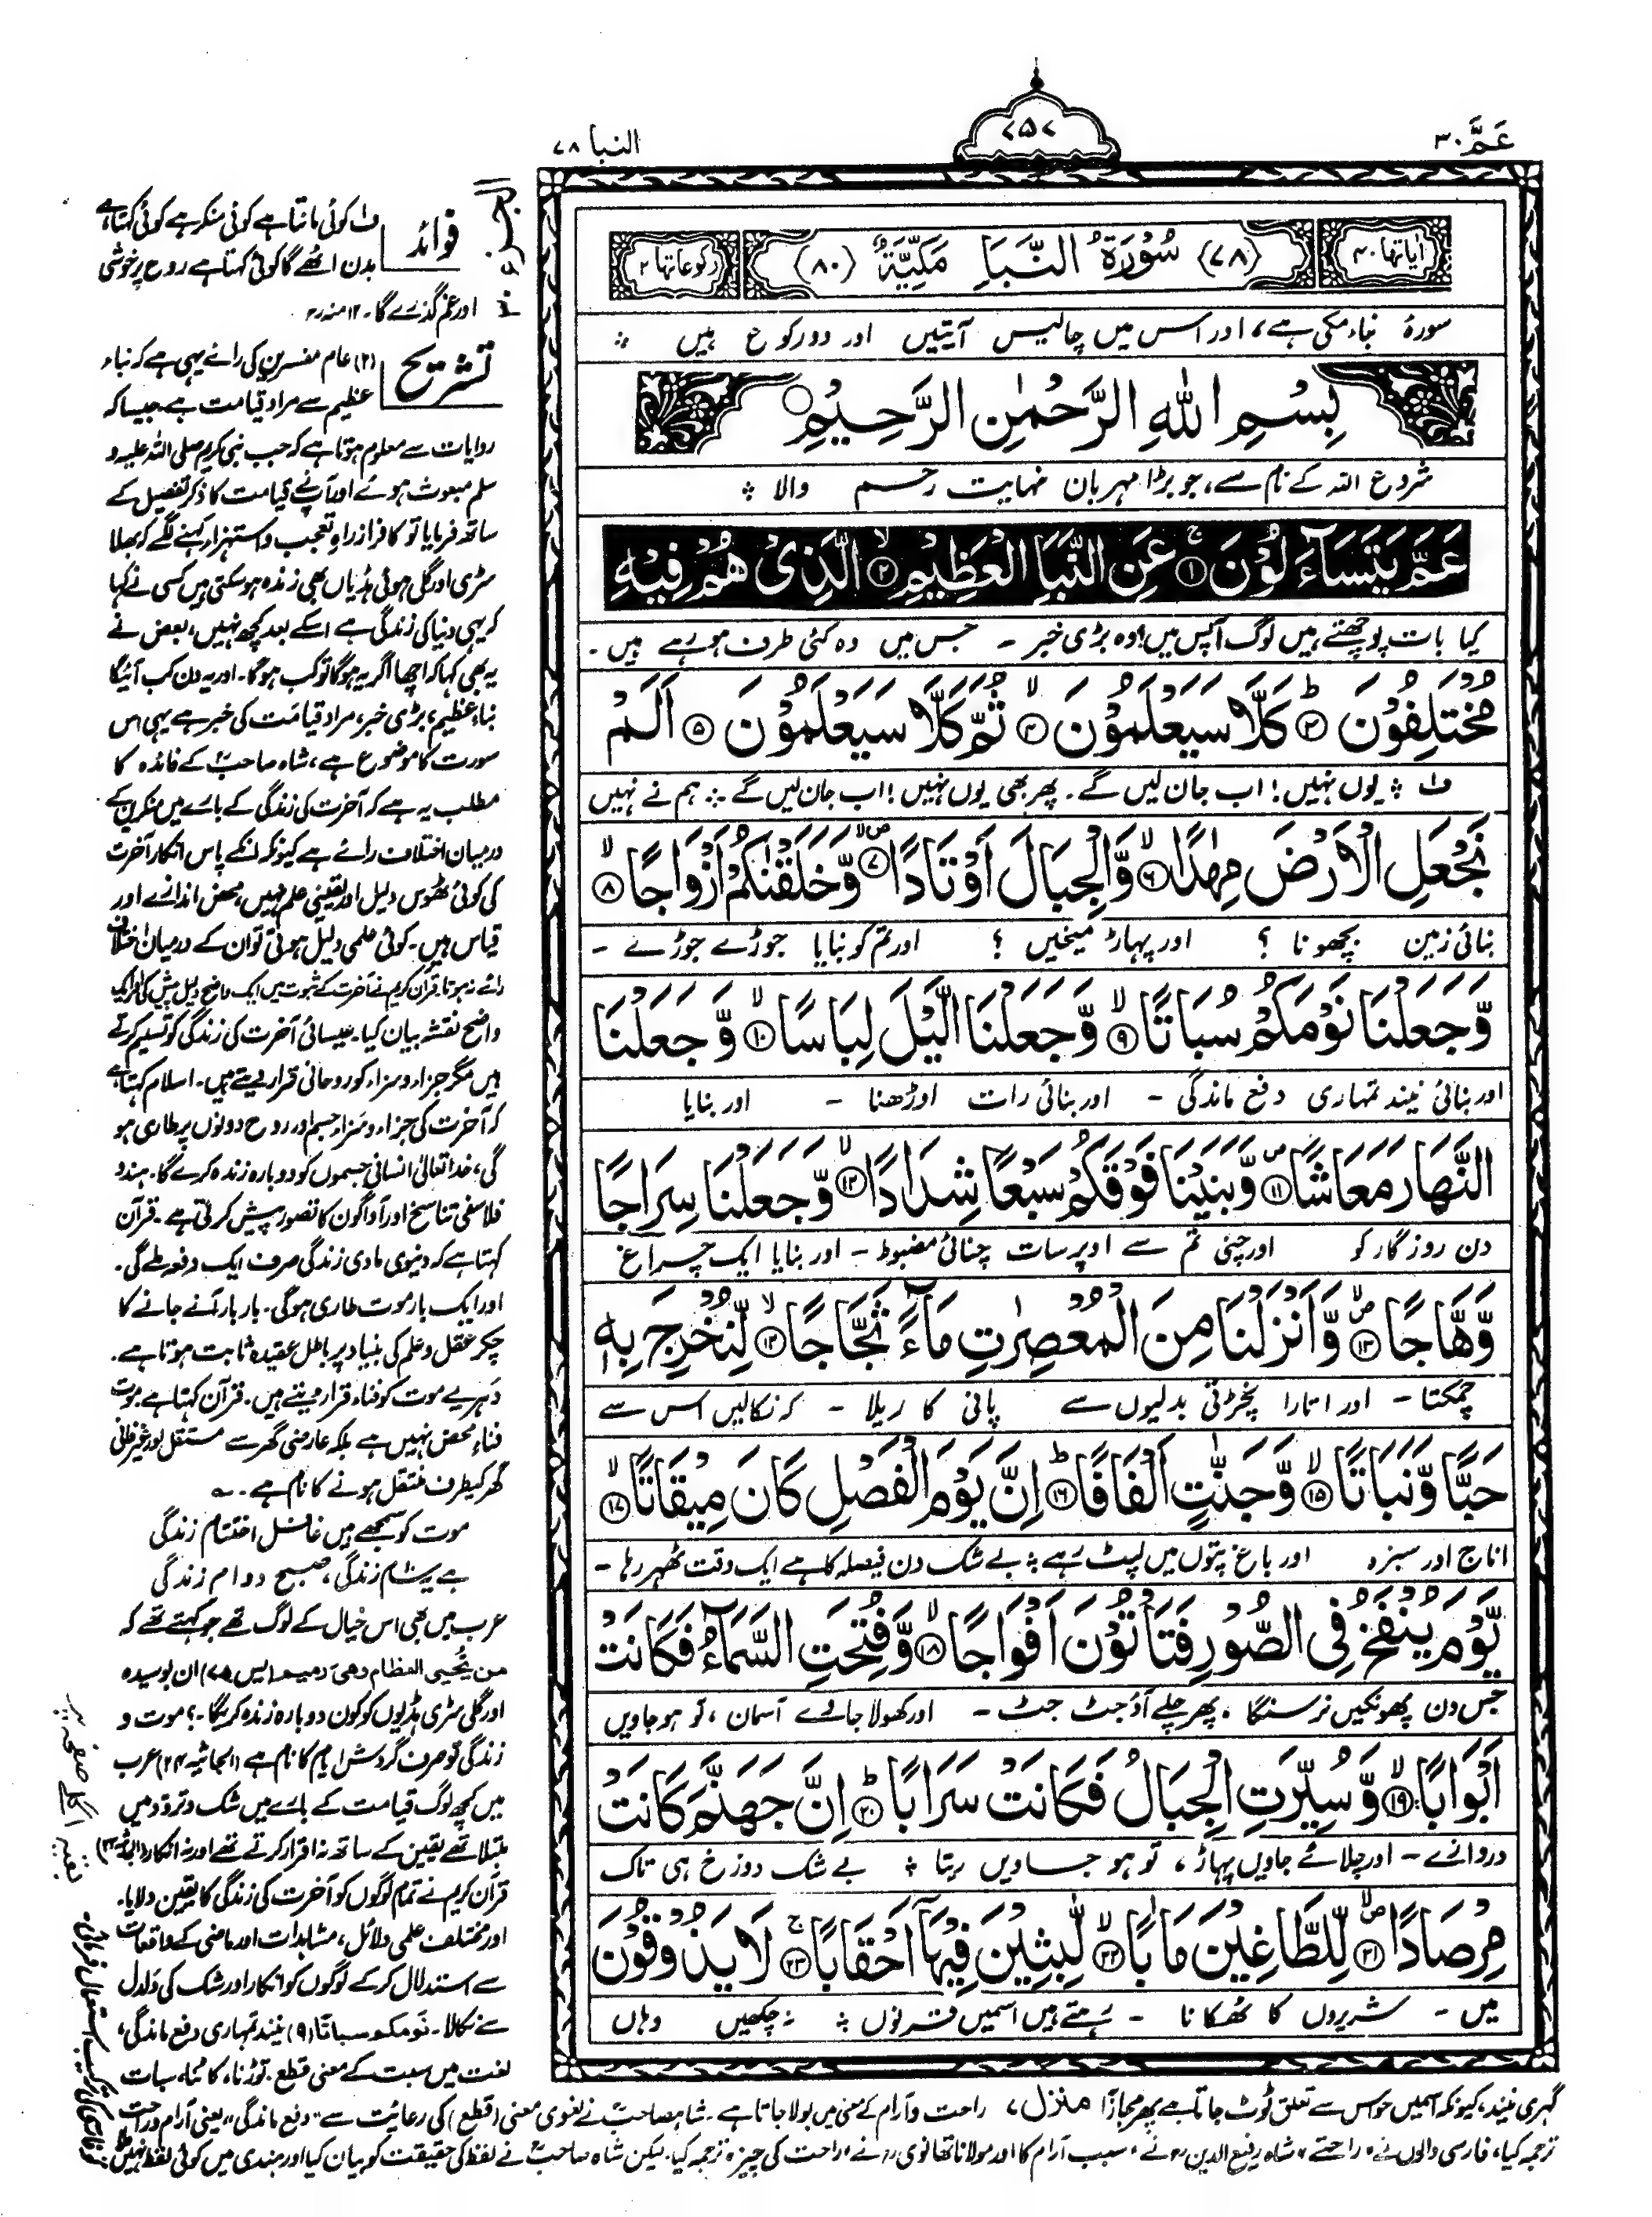 عَمَّ ٣٠
٧٥٧
النبا ٧٨
اٰیاتها ٤٠
(٧٨) سُوْرَةُ النَّبَاِ مَكِّيَّةٌ (٨٠)
رکوعاتها ٢
سورۂ نباء مکی ہے، اور اس میں چالیس آیتیں اور دو رکوع ہیں
بِسْمِ اللهِ الرَّحْمٰنِ الرَّحِيْمِ
شروع اللہ کے نام سے، جو بڑا مہربان نہایت رحم والا
عَمَّ يَتَسَآءَلُوْنَ ۝١ عَنِ النَّبَاِ الْعَظِيْمِ ۝٢ الَّذِيْ هُمْ فِيْهِ
کیا بات پوچھتے ہیں لوگ آپس میں؟ وہ بڑی خبر - جس میں وہ کئی طرف ہو رہے ہیں -
مُخْتَلِفُوْنَ ۝٣ كَلَّا سَيَعْلَمُوْنَ ۝٤ ثُمَّ كَلَّا سَيَعْلَمُوْنَ ۝٥ اَلَمْ
ف١ یوں نہیں! اب جان لیں گے۔ پھر بھی یوں نہیں! اب جان لیں گے ہم نے نہیں
نَجْعَلِ الْاَرْضَ مِهٰدًا ۝٦ وَّالْجِبَالَ اَوْتَادًا ۝٧ وَّخَلَقْنٰكُمْ اَزْوَاجًا ۝٨
بنائی زمین بچھونا ؟ اور پہاڑ میخیں ؟ اور تم کو بنایا جوڑے جوڑے -
وَّجَعَلْنَا نَوْمَكُمْ سُبَاتًا ۝٩ وَّجَعَلْنَا الَّيْلَ لِبَاسًا ۝١٠ وَّجَعَلْنَا
اور بنائی نیند تمہاری دفع ماندگی - اور بنائی رات اوڑھنا - اور بنایا
النَّهَارَ مَعَاشًا ۝١١ وَّبَنَيْنَا فَوْقَكُمْ سَبْعًا شِدَادًا ۝١٢ وَّجَعَلْنَا سِرَاجًا
دن روزگار کو اور چنی تم سے اوپر سات چنائی مضبوط - اور بنایا ایک چراغ
وَّهَّاجًا ۝١٣ وَّاَنْزَلْنَا مِنَ الْمُعْصِرٰتِ مَآءً ثَجَّاجًا ۝١٤ لِّنُخْرِجَ بِهٖ
چمکتا - اور اتارا نچڑتی بدلیوں سے پانی کا ریلا - کہ نکالیں اس سے
حَبًّا وَّنَبَاتًا ۝١٥ وَّجَنّٰتٍ اَلْفَافًا ۝١٦ اِنَّ يَوْمَ الْفَصْلِ كَانَ مِيْقَاتًا ۝١٧
اناج اور سبزہ اور باغ پتوں میں لپٹ رہے بے شک دن فیصلہ کا ہے ایک وقت ٹھہر رہا -
يَّوْمَ يُنْفَخُ فِي الصُّوْرِ فَتَاْتُوْنَ اَفْوَاجًا ۝١٨ وَّفُتِحَتِ السَّمَآءُ فَكَانَتْ
جس دن پھونکیں نرسنگا ، پھر چلے آؤ جٹ جٹ - اور کھولا جائے آسمان ، تو ہو جاویں
اَبْوَابًا ۝١٩ وَّسُيِّرَتِ الْجِبَالُ فَكَانَتْ سَرَابًا ۝٢٠ اِنَّ جَهَنَّمَ كَانَتْ
دروازے - اور چلائے جاویں پہاڑ ، تو ہو جاویں ریتا بے شک دوزخ ہی تاک
مِرْصَادًا ۝٢١ لِّلطَّاغِيْنَ مَاٰبًا ۝٢٢ لّٰبِثِيْنَ فِيْهَآ اَحْقَابًا ۝٢٣ لَا يَذُوْقُوْنَ
میں - شریروں کا ٹھکانا - رہتے ہیں اسمیں قرنوں نہ چکھیں وہاں
فوائد
ف١ کوئی مانتا ہے کوئی منکر ہے کوئی کہتا ہے
بدن اٹھے گا کوئی کہتا ہے روح پر خوشی
اور غم گذرے گا۔ ١٢ منہ رح
تشریح
(٢) عام مفسرین کی رائے یہی ہے کہ نباء
عظیم سے مراد قیامت ہے۔ جیسا کہ
روایات سے معلوم ہوتا ہے کہ جب نبی کریم صلی اللہ علیہ و
سلم مبعوث ہوئے اور آپ نے قیامت کا ذکر تفصیل کے
ساتھ فرمایا تو کافر ازراہ تعجب و استہزاء کہنے لگے کہ بھلا
سڑی اور گلی ہوئی ہڈیاں بھی زندہ ہو سکتی ہیں کسی نے کہا
کہ یہی دنیا کی زندگی ہے اسکے بعد کچھ نہیں، بعض نے
یہ بھی کہا کہ اچھا اگر یہ ہوگا تو کب ہوگا۔ اور یہ دن کب آئیگا
نباء عظیم، بڑی خبر، مراد قیامت کی خبر ہے یہی اس
سورت کا موضوع ہے، شاہ صاحبؒ کے فائدہ کا
مطلب یہ ہے کہ آخرت کی زندگی کے بارے میں منکرین کے
درمیان اختلاف رائے ہے کیونکہ انکے پاس انکار آخرت
کی کوئی ٹھوس دلیل اور یقینی علم نہیں، محض اندازے اور
قیاس ہیں۔ کوئی علمی دلیل ہوتی تو ان کے درمیان اختلاف
رائے نہ ہوتا، قرآن کریم نے آخرت کے ثبوت میں ایک واضح دلیل پیش کی اور ایک
واضح نقشہ بیان کیا۔ عیسائی آخرت کی زندگی کو تسلیم کرتے
ہیں مگر جزاء و سزاء کو روحانی قرار دیتے ہیں۔ اسلام کہتا ہے
کہ آخرت کی جزاء و سزاء جسم اور روح دونوں پر طاری ہو
گی، خدا تعالیٰ انسانی جسموں کو دوبارہ زندہ کرے گا۔ ہندو
فلاسفی تناسخ اور آواگون کا تصور پیش کرتی ہے۔ قرآن
کہتا ہے کہ دنیوی مادی زندگی صرف ایک دفعہ ملے گی۔
اور ایک بار موت طاری ہوگی۔ بار بار آنے جانے کا
چکر عقل و علم کی بنیاد پر باطل عقیدہ ثابت ہوتا ہے۔
دہریے موت کو فناء قرار دیتے ہیں۔ قرآن کہتا ہے موت
فناء محض نہیں ہے بلکہ عارضی گھر سے مستقل اور غیر فانی
گھر کیطرف منتقل ہونے کا نام ہے۔
موت کو سمجھے ہیں غافل اختتام زندگی
ہے یہ شام زندگی، صبح دوام زندگی
عرب میں بھی اس خیال کے لوگ تھے جو کہتے تھے کہ
من یحیی العظام وھی رمیم (یس ٧٨) ان بوسیدہ
اور گلی سڑی ہڈیوں کو کون دوبارہ زندہ کریگا۔؟ موت و
زندگی تو صرف گردش ایام کا نام ہے (الجاثیہ ٢٤) عرب
میں کچھ لوگ قیامت کے بارے میں شک و تردّد میں
مبتلا تھے یقین کے ساتھ نہ اقرار کرتے تھے اور نہ انکار
قرآن کریم نے تمام لوگوں کو آخرت کی زندگی کا یقین دلایا۔
اور مختلف علمی دلائل، مشاہدات اور ماضی کے واقعات
سے استدلال کرکے لوگوں کو انکار اور شک کی دلدل
سے نکالا۔ نومکم سباتا (٩) نیند تمہاری دفع ماندگی،
لغت میں سبت کے معنی قطع، توڑنا، کاٹنا، سبات
گہری نیند، کیونکہ اسمیں حواس سے تعلق ٹوٹ جاتا ہے پھر مجازاً
منزل ٧
راحت و آرام کے معنی میں بولا جاتا ہے۔ شاہ صاحبؒ نے لغوی معنی (قطع) کی رعایت سے "دفع ماندگی" یعنی آرام و راحت
ترجمہ کیا، فارسی والوں نے "راحتے" شاہ رفیع الدینؒ نے "سبب آرام کا" اور مولانا تھانویؒ نے "راحت کی چیز" ترجمہ کیا۔ لیکن شاہ صاحبؒ نے لفظ کی حقیقت کو بیان کیا اور ہندی میں کوئی لفظ نہیں
بقیہ اگلے صفحہ پر